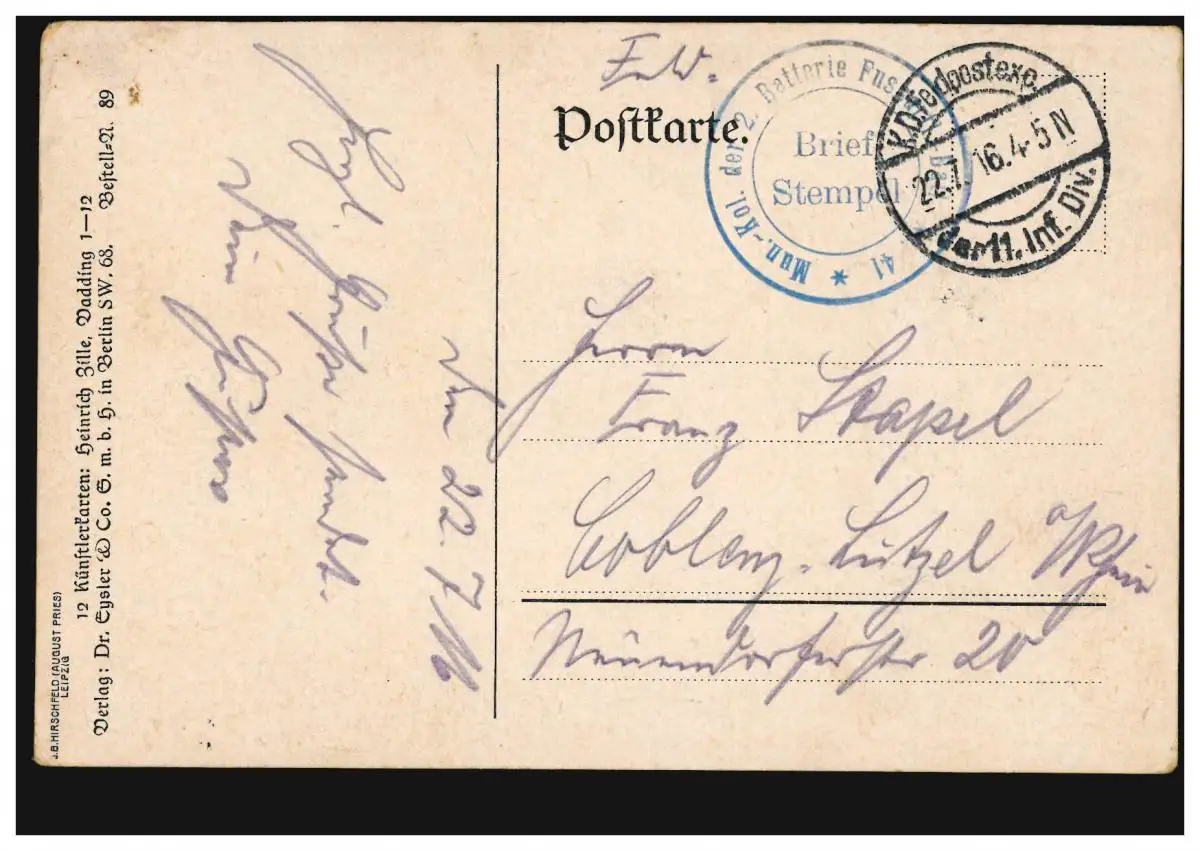 Feld-
Postkarte.
Mun.-Kol. der 2. Batterie Fuss 41
Brief
Stempel
K.D. Feldpostexp.
22.7.16. 4-5 N
der 11. Inf. Div.
Herrn
Franz Stapel
Coblenz-Lützel a/Rhein
Neuendorferstr 20
den 22.7.16
Herzl. Grüße sendet
Dein
12 Künstlerkarten: Heinrich Zille, Vadding 1—12
Verlag: Dr. Eysler & Co. G. m. b. H. in Berlin SW. 68. Bestell=N. 89
J.B. HIRSCHFELD (AUGUST PRIES)
LEIPZIG